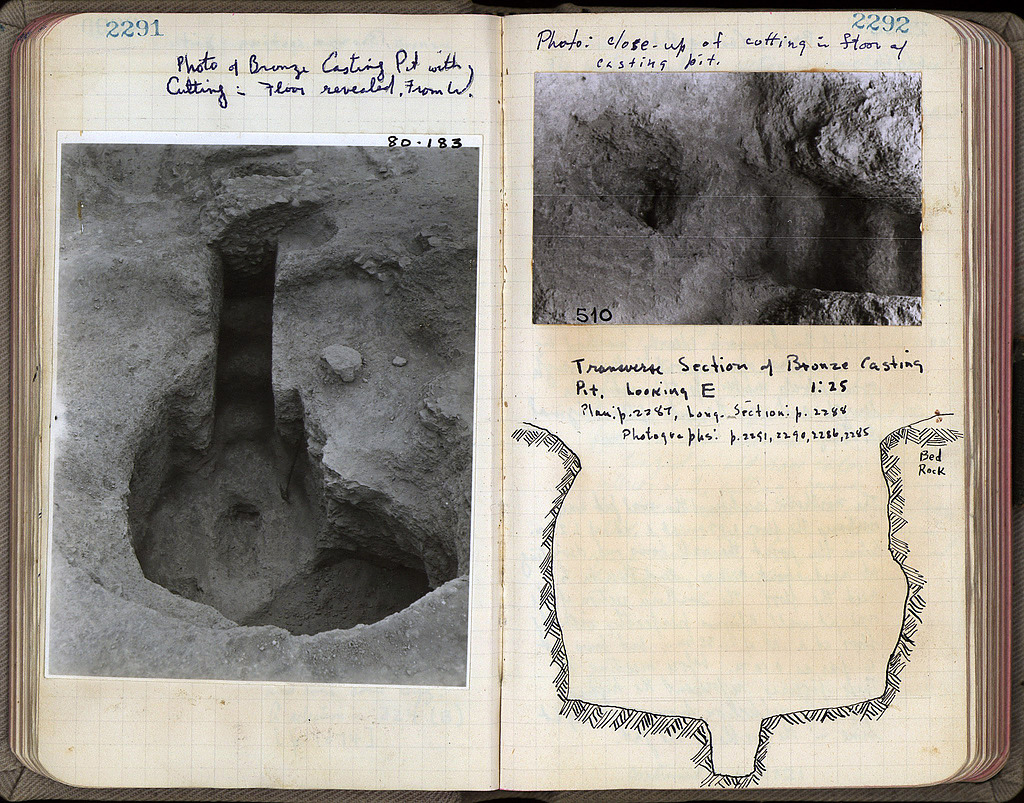 2291
Photo of Bronze Casting Pit with
Cutting in Floor revealed. From W.
80-183
2292
Photo: close-up of cutting in floor of
casting pit.
510
Transverse Section of Bronze Casting
Pit, Looking E 1:25
Plan: p. 2287, Long. Section: p. 2288
Photographs: p. 2291, 2290, 2286, 2285
Bed
Rock